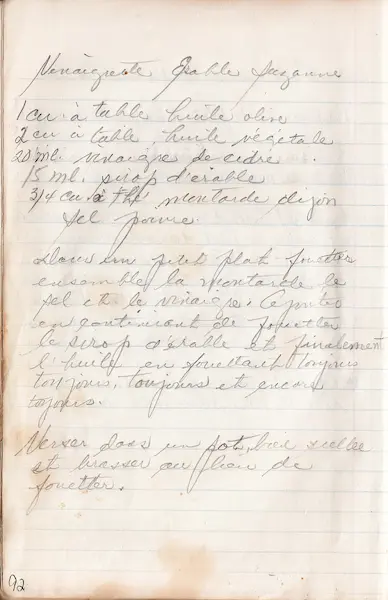 Vinaigrette Érable Suzanne
1 cu. à table huile olive
2 cu à table huile végétale
20 ml. vinaigre de cidre.
15 ml. sirop d'érable
3/4 cu. à thé moutarde dijon
Sel poivre.
Dans un petit plat fouetter
ensemble la moutarde le
sel et le vinaigre. Ajouter
en continuant de fouetter
le sirop d'érable et finalement
l'huile en fouettant toujours
toujours, toujours et encore
toujours.
Verser dans un pot, bien sceller
et brasser au lieu de
fouetter.
92